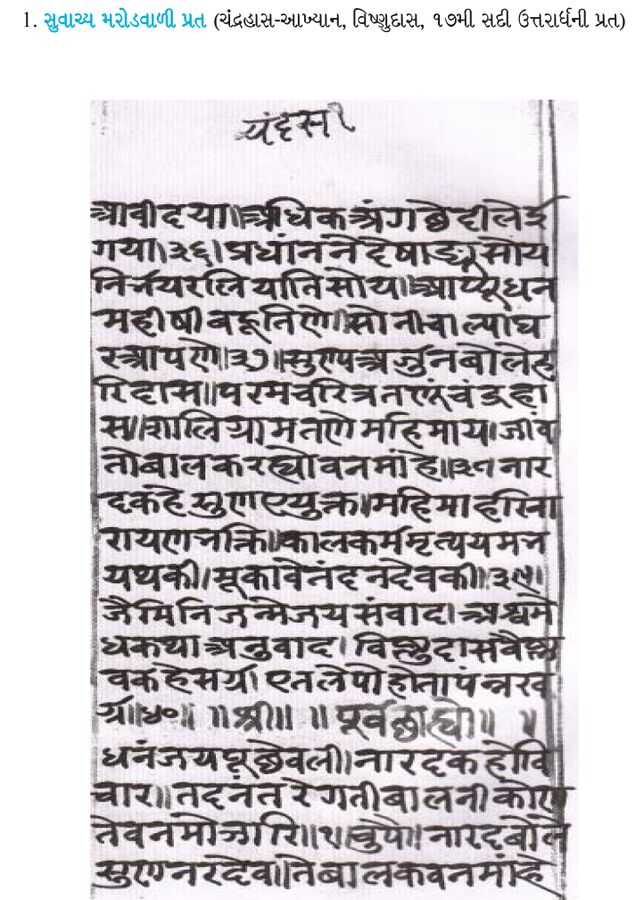 1. સુવાચ્ય મરોડવાળી પ્રત (ચંદ્રહાસ-આખ્યાન, વિષ્ણુદાસ, ૧૭મી સદી ઉત્તરાર્ધની પ્રત)
आवीदया॥अधिकअंगछेदीलेई
गया।३६।प्रधांननेदेषाड्यूसोय
निर्नयरलियातिसोय॥
महीषीवहूतिणे॥सोनीवाल्पांघ
स्आपणे॥३७॥सुणपअर्जुनबोलेह
रिदास॥परमचरित्रतणूंचंद्रहा
स॥शालिग्रामतणेमहिमाय।जीव
तोबालकरह्योवनमांहे॥३८नार
दकहेसुणएयुक्त॥महिमाहरिना
रायणभक्ति॥कालकर्ममृत्ययमभ
यथकी।मूकावेनंदनदेवकी॥३९।
जैमिनिजन्मेजयसंवाद।अश्वमे
धकथाअनुवाद।विष्णुदासवैष्ण
वकहेसर्ग।एतलेपोहोतापंन्नरव
र्ग॥४०॥ ॥श्री॥ ॥पूर्वछाद्यो॥ ॥
धनंजयपूछेवली।नारदकहोवि
चार॥तदनंतरेगतीबालनीकोण
तेवनमोझारि॥१॥चुपै॥नारदबोले
सुणनरदेव॥तेबालकवनमांहे